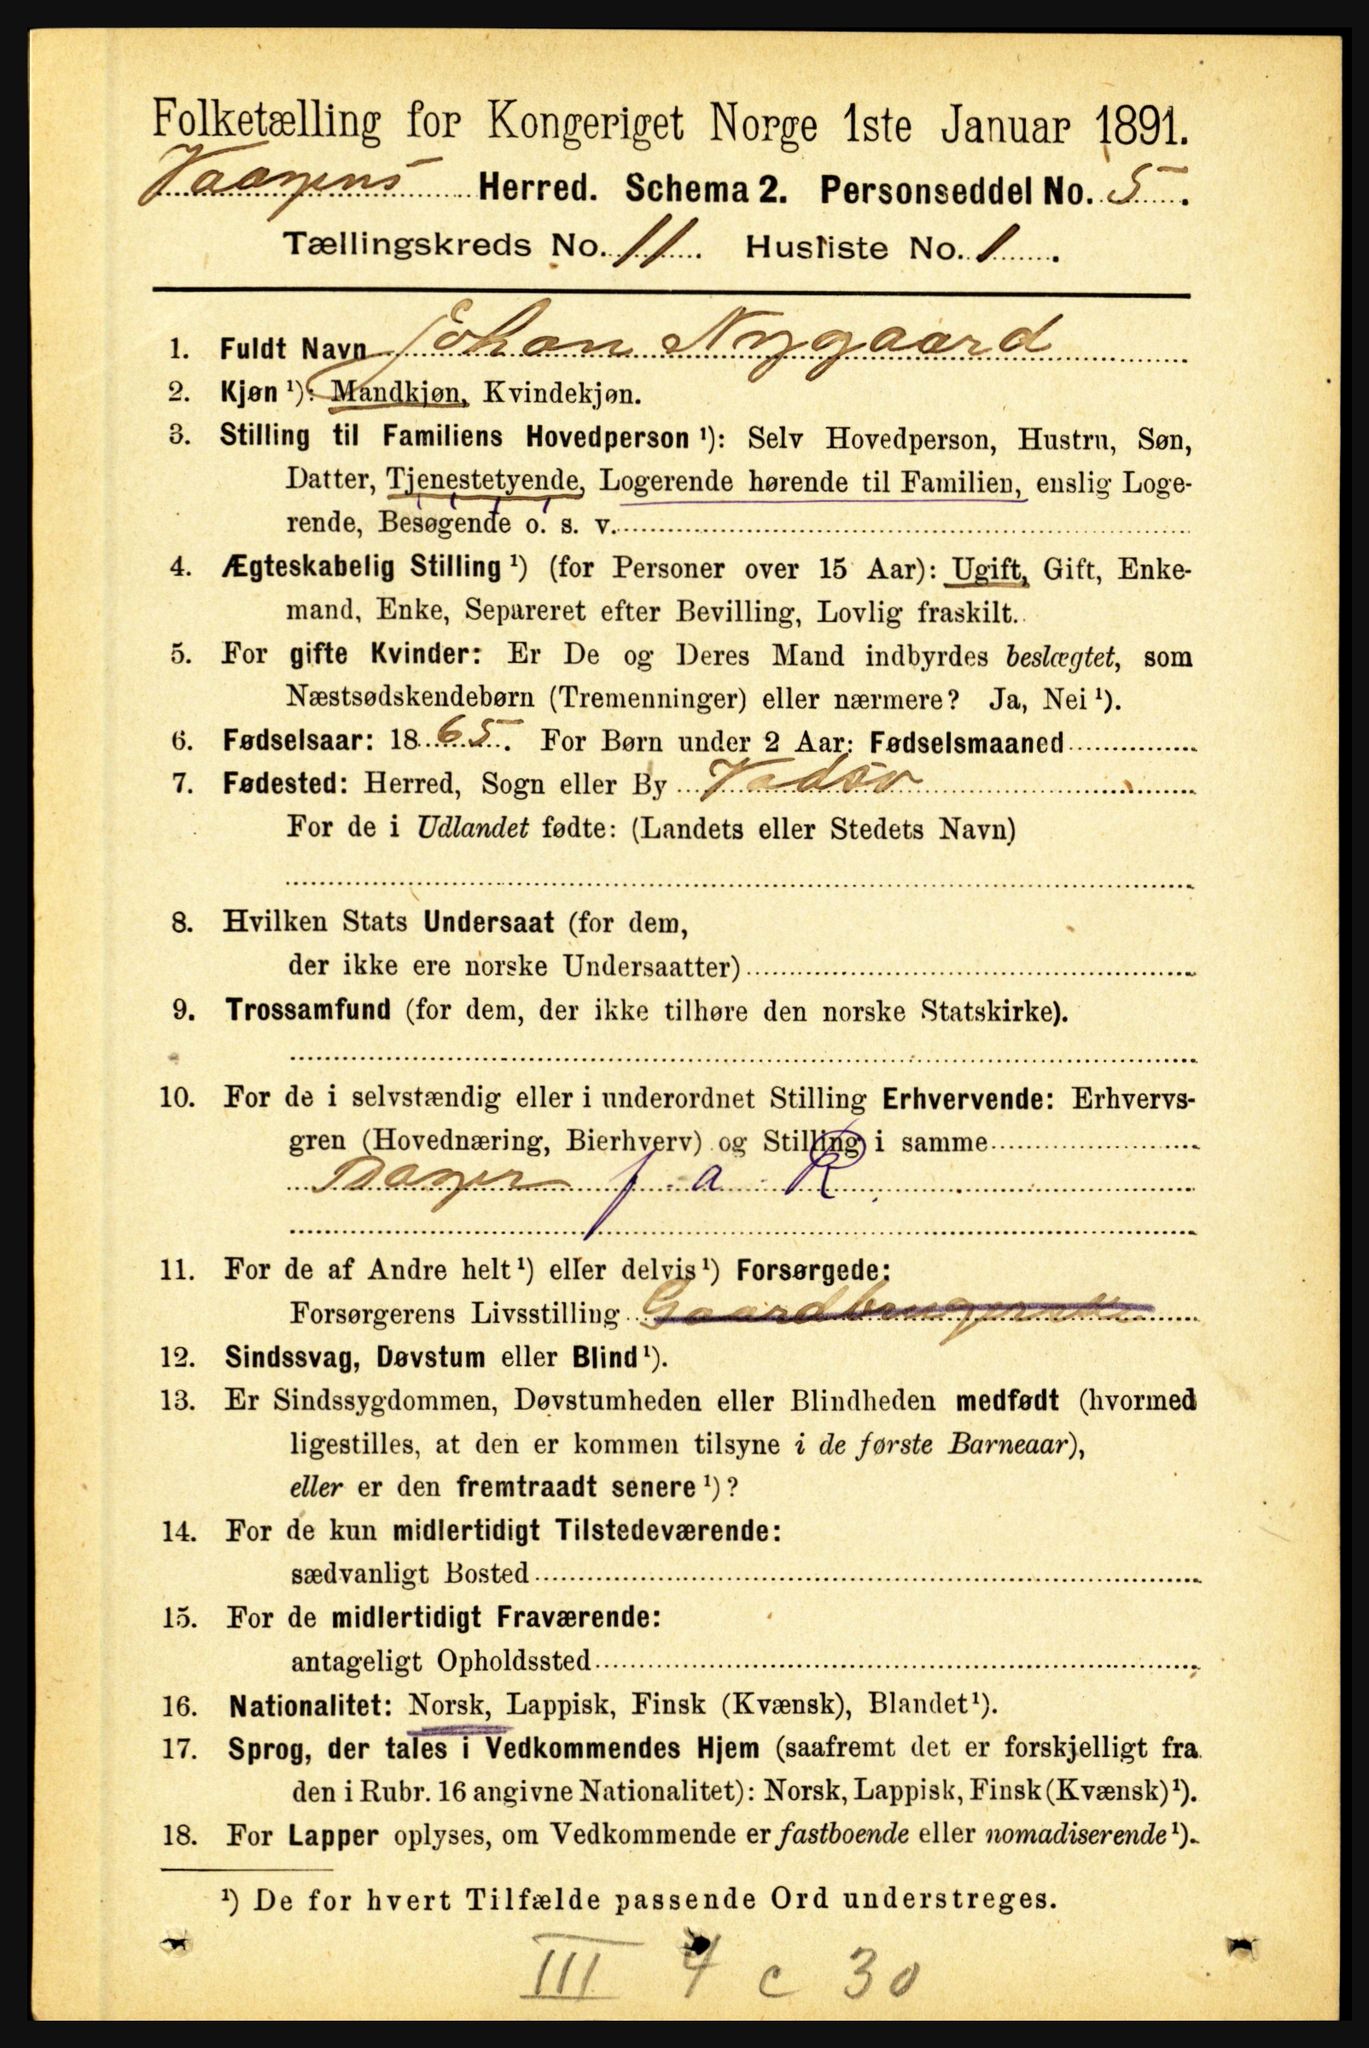 Folketælling for Kongeriget Norge 1ste Januar 1891.
Vaagens Herred. Schema 2. Personseddel No. 5.
Tællingskreds No. 11. Husliste No. 1.
1. Fuldt Navn Johan Nygaard
2. Kjøn ¹): Mandkjøn, Kvindekjøn.
3. Stilling til Familiens Hovedperson ¹): Selv Hovedperson, Hustru, Søn,
Datter, Tjenestetyende, Logerende hørende til Familien, enslig Loge-
rende, Besøgende o. s. v.
4. Ægteskabelig Stilling ¹) (for Personer over 15 Aar): Ugift, Gift, Enke-
mand, Enke, Separeret efter Bevilling, Lovlig fraskilt.
5. For gifte Kvinder: Er De og Deres Mand indbyrdes beslægtet, som
Næstsødskendebørn (Tremenninger) eller nærmere? Ja, Nei ¹).
6. Fødselsaar: 1865. For Børn under 2 Aar: Fødselsmaaned
7. Fødested: Herred, Sogn eller By Vadsø
For de i Udlandet fødte: (Landets eller Stedets Navn)
8. Hvilken Stats Undersaat (for dem,
der ikke ere norske Undersaatter)
9. Trossamfund (for dem, der ikke tilhøre den norske Statskirke).
10. For de i selvstændig eller i underordnet Stilling Erhvervende: Erhvervs-
gren (Hovednæring, Bierhverv) og Stilling i samme
Bager f. a. R.
11. For de af Andre helt ¹) eller delvis ¹) Forsørgede:
Forsørgerens Livsstilling
12. Sindssvag, Døvstum eller Blind ¹).
13. Er Sindssygdommen, Døvstumheden eller Blindheden medfødt (hvormed
ligestilles, at den er kommen tilsyne i de første Barneaar),
eller er den fremtraadt senere ¹)?
14. For de kun midlertidigt Tilstedeværende:
sædvanligt Bosted
15. For de midlertidigt Fraværende:
antageligt Opholdssted
16. Nationalitet: Norsk, Lappisk, Finsk (Kvænsk), Blandet ¹).
17. Sprog, der tales i Vedkommendes Hjem (saafremt det er forskjelligt fra
den i Rubr. 16 angivne Nationalitet): Norsk, Lappisk, Finsk (Kvænsk) ¹).
18. For Lapper oplyses, om Vedkommende er fastboende eller nomadiserende ¹).
¹) De for hvert Tilfælde passende Ord understreges.
III 4 c 30